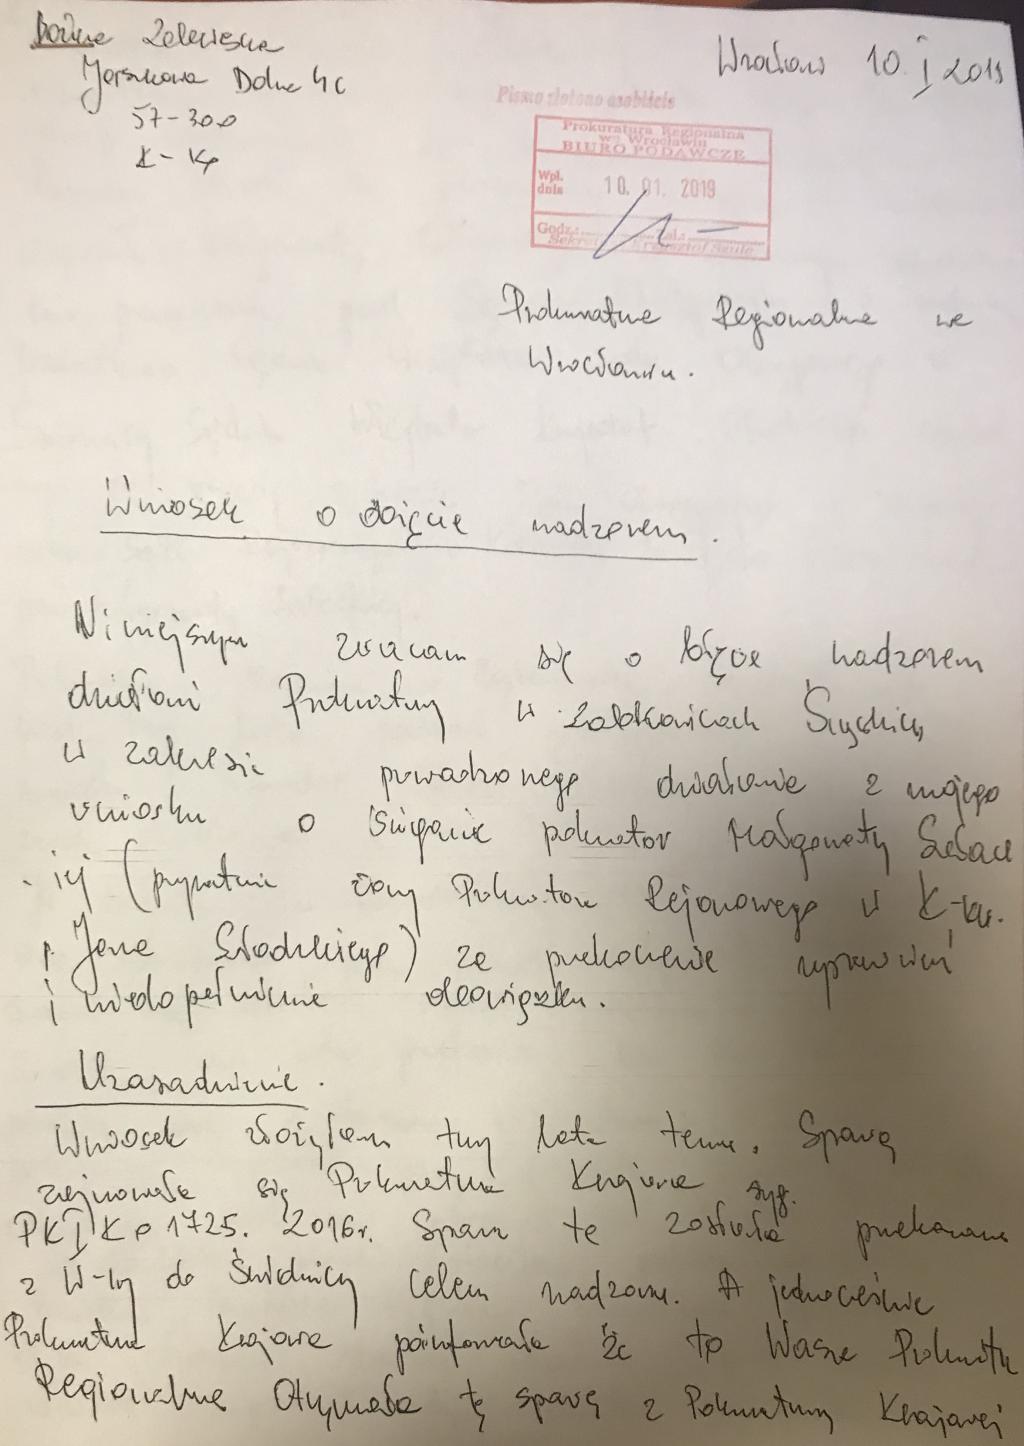 Wrocław 10. I 2019
Jaszkowa Dolna 4c
57-300
K-Ko
Pismo złożono osobiście
Prokuratura Regionalna
we Wrocławiu
BIURO PODAWCZE
Wpł. dnia 10. 01. 2019
Godz.: zał.:
Krzysztof
Prokuratura Regionalna we
Wrocławiu.
Wniosek o objęcie nadzorem.
Niniejszym zwracam się o objęcie nadzorem
działań Prokuratury w Ząbkowicach Śląskich,
w zakresie prowadzonego działania z mojego
wniosku o ściganie prokurator Małgorzaty
(prywatnie żony Prokuratora Rejonowego w K-ku.
p. Jana) za przekroczenie uprawnień
i niedopełnienie obowiązku.
Uzasadnienie.
Wniosek złożyłam trzy lata temu. Sprawą
zajmowała się Prokuratura Krajowa syg.
PK I Ko 1725. 2016r. Sprawa ta została przekazana
z W-wy do Świdnicy celem nadzoru. A jednocześnie
Prokuratura Krajowa poinformowała że to Wasza Prokuratura
Regionalna Otrzymała tę sprawę z Prokuratury Krajowej